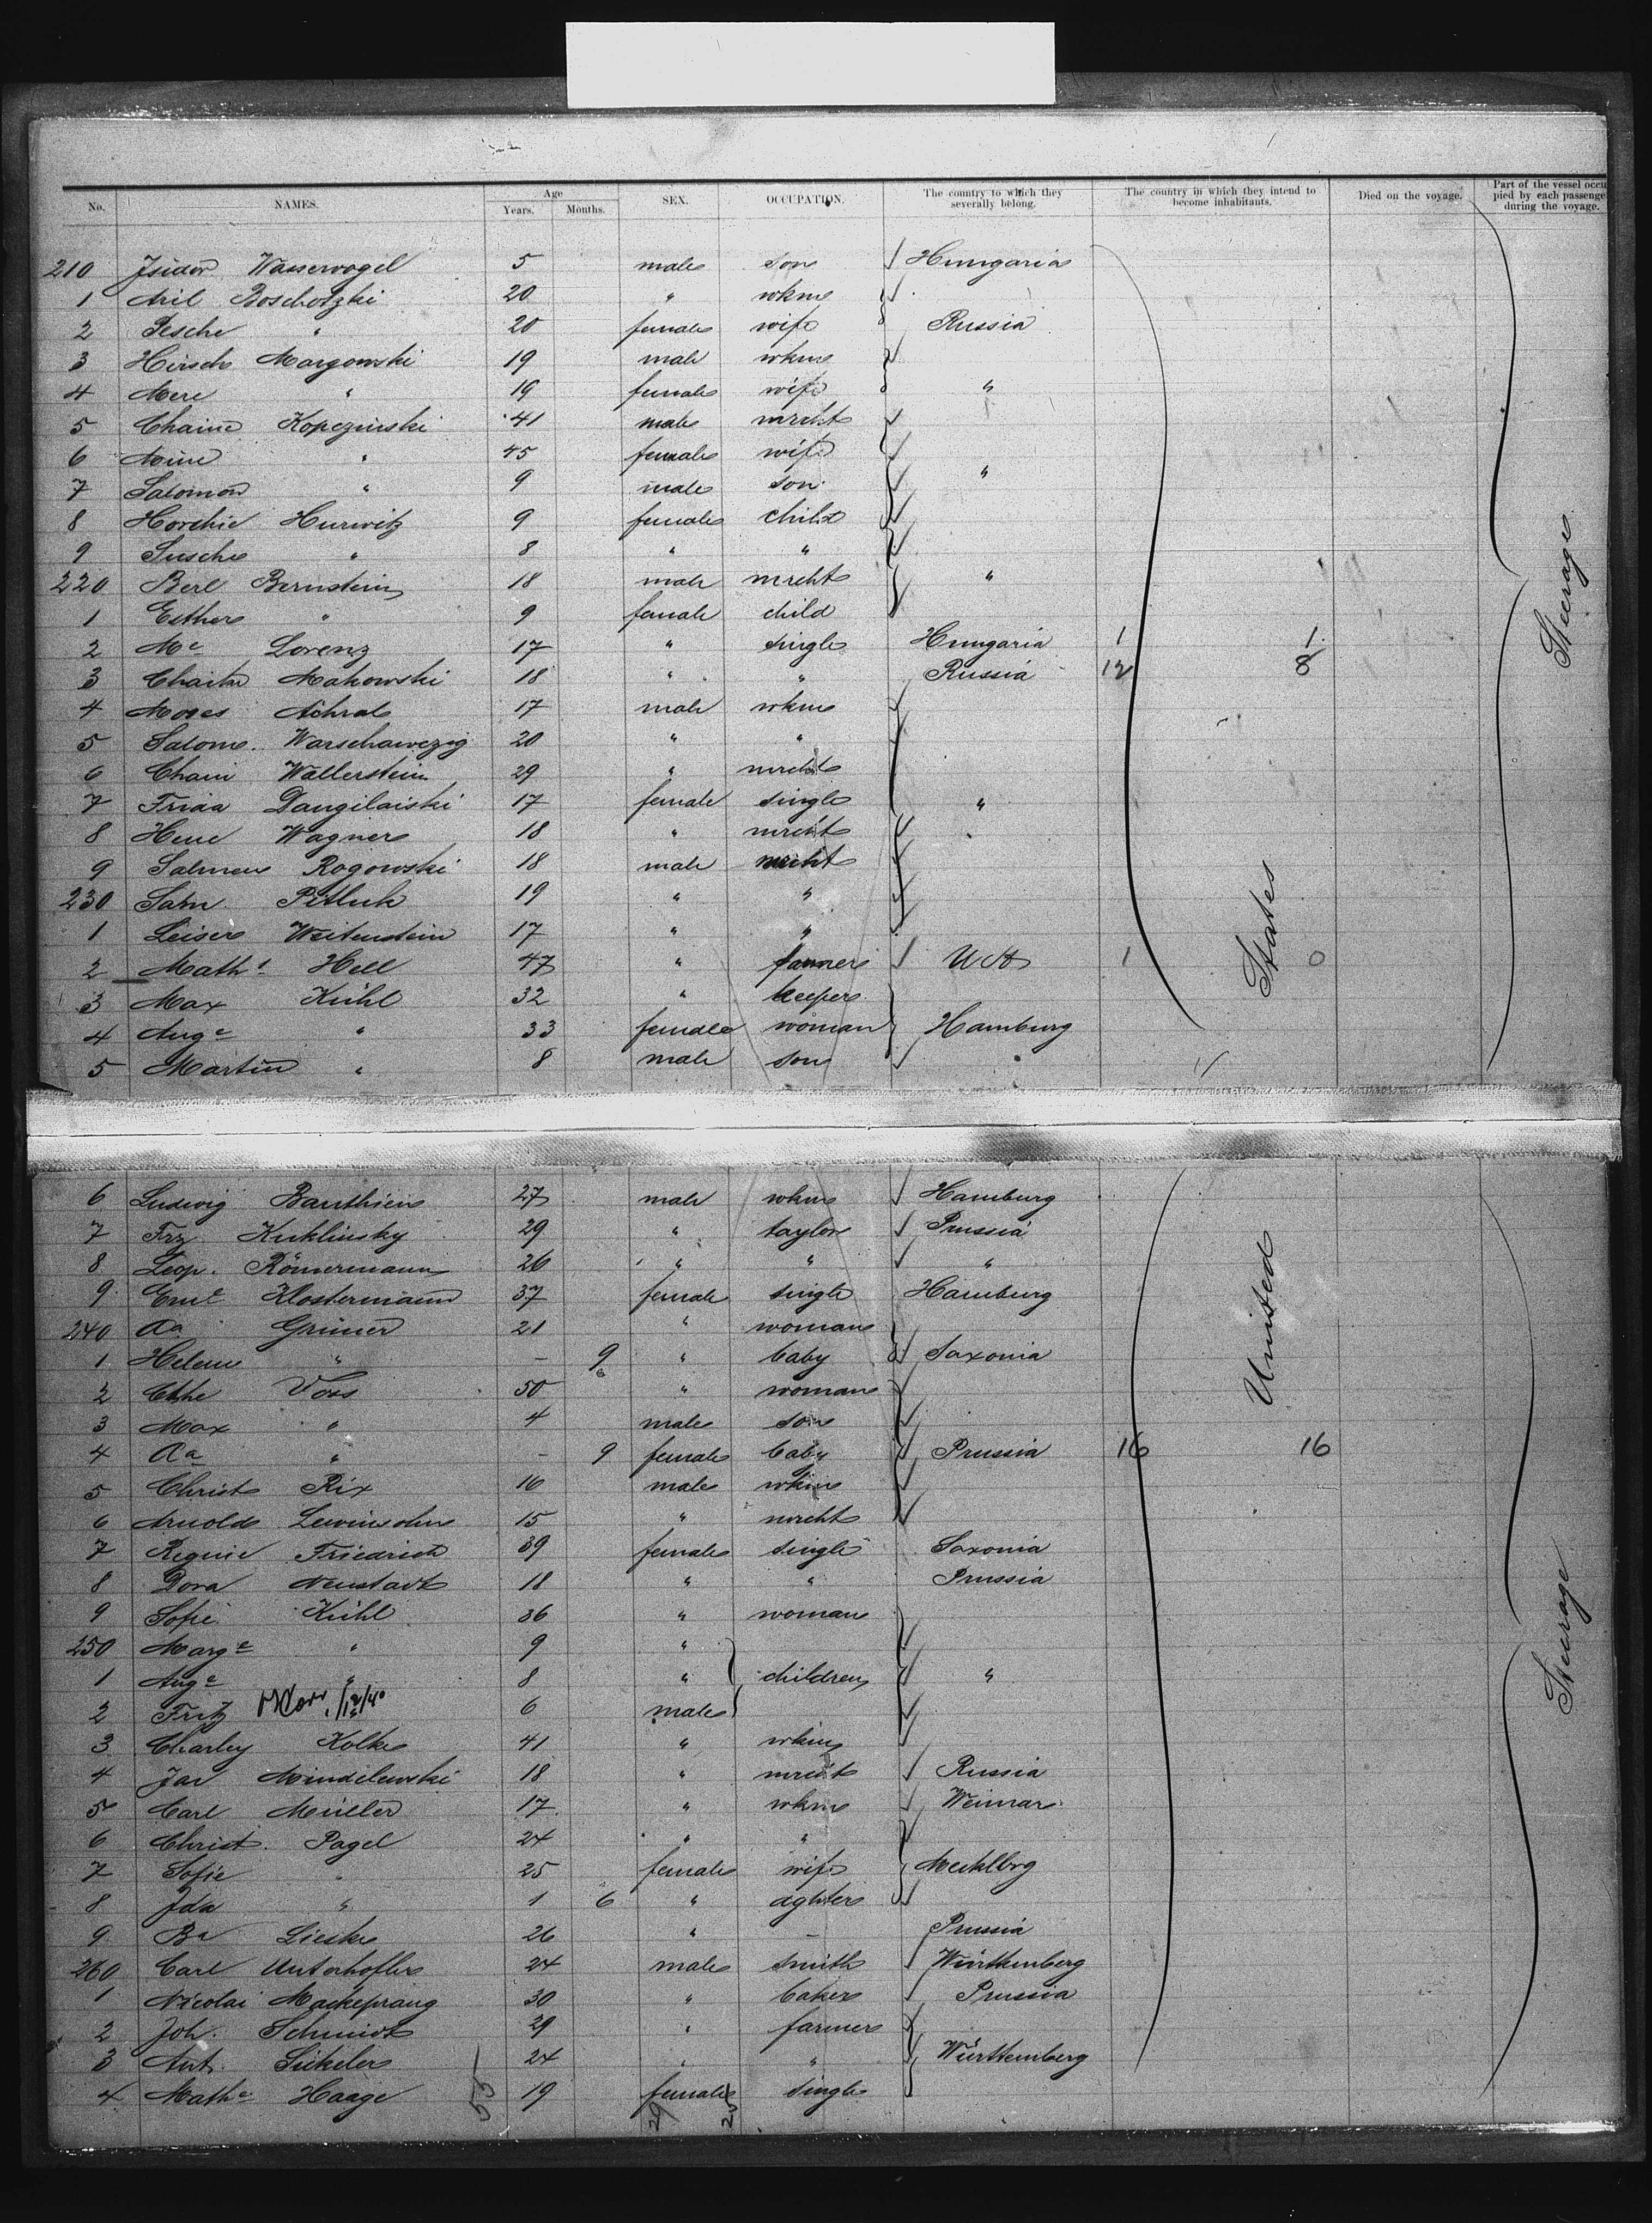 No. NAMES. Age Years. Months. SEX. OCCUPATION. The country to which they severally belong. The country in which they intend to become inhabitants. Died on the voyage. Part of the vessel occupied by each passenger during the voyage.
210 Isidor Wasservogel 5 male son Hungaria
1 Aril Boschotzki 20 " wkm
2 Pesche " 20 female wife Russia
3 Hirsch Margowski 19 male wkm
4 Mere " 19 female wife "
5 Chaim Kopczinski 41 male mrcht
6 " 45 female wife
7 Salomon " 9 male son "
8 Hurwitz 9 female child
9 Susche " 8 " "
220 Berl Bernstein 18 male mrcht "
1 Esther " 9 female child
2 Me Lorenz 17 " single Hungaria 1 1
3 Makowski 18 " " Russia 12 8
4 Moses Achral 17 male wkm
5 Salom. Warschawczig 20 " "
6 Chain Wallerstein 29 " mrcht
7 Frida Dangilaiski 17 female single "
8 Hene Wagner 18 " mrcht
9 Salmen Rogowski 18 male mrcht
230 Sam Pitluk 19 " "
1 Leiser Weitenstein 17 " "
2 Math Hell 47 " farmer USt 1 0
3 Max Kühl 32 " keeper
4 Auge " 33 female woman Hamburg
5 Martin " 8 male son "
States
Steerage
6 Ludwig Banthien 27 male wkm Hamburg
7 Frz Kuklinsky 29 " taylor Prussia
8 Leop. Römermann 26 " " "
9 Eme Klostermann 37 female single Hamburg
240 Aa Grüner 21 " woman
1 Helene " - 9 " baby Saxonia
2 Voss 50 " woman
3 Max " 4 male son
4 Aa " - 9 female baby Prussia 16 16
5 Christ Rix 16 male wkm
6 Arnold Lewinsohn 15 " mrcht
7 Regine Friedrich 39 female single Saxonia
8 Dora Neustadt 18 " " Prussia
9 Sofie Kühl 36 " woman
250 Marge " 9 "
1 Auge " 8 " children "
2 Fritz 6 male
3 Charley Kolke 41 " wkm
4 Jas Mindelewski 18 " mrcht Russia
5 Carl Müller 17 " wkm Weimar
6 Christ. Pagel 24 " "
7 Sofie " 25 female wife Mecklbrg
8 Ida " 1 6 " dghter
9 Ba Lieske 26 " - Prussia
260 Carl Unterhofler 24 male smith Württemberg
1 Nicolai Mackeprang 30 " baker Prussia
2 Joh. Schmidt 29 " farmer
3 Ant. Sickeler 24 " " Württemberg
4 Mathe Haage 19 female single
55 29 25
United
Steerage